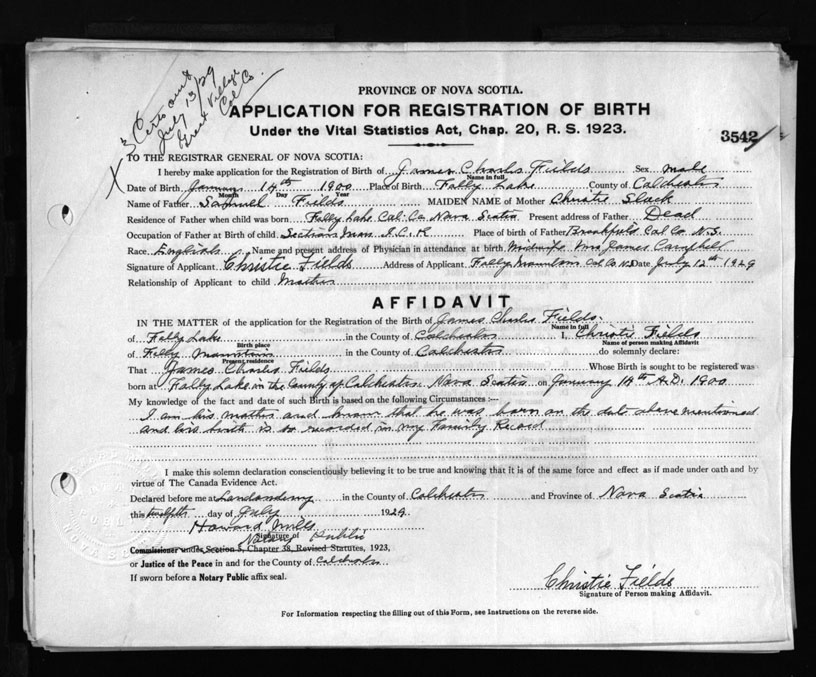 3 Certs out
July 13/29
Great Village
Col Co.
PROVINCE OF NOVA SCOTIA.
APPLICATION FOR REGISTRATION OF BIRTH
Under the Vital Statistics Act, Chap. 20, R. S. 1923.
3542
TO THE REGISTRAR GENERAL OF NOVA SCOTIA:
I hereby make application for the Registration of Birth of James Charles Fields Sex male
Name in full
Date of Birth January 14th 1900 Place of Birth Folly Lake County of Colchester
Month Day Year
Name of Father Samuel Fields MAIDEN NAME of Mother Christie Slack
Residence of Father when child was born Folly Lake Col. Co. Nova Scotia Present address of Father Dead
Occupation of Father at Birth of child Section man I.C.R Place of birth of Father Brookfield Col Co N.S.
Race English Name and present address of Physician in attendance at birth Midwife Mrs James Campbell
Signature of Applicant Christie Fields Address of Applicant Folly Mountain Col Co NS Date July 12th 1929
Relationship of Applicant to child Mother
AFFIDAVIT
IN THE MATTER of the application for the Registration of the Birth of James Charles Fields.
Name in full
of Folly Lake in the County of Colchester I, Christie Fields
Birth place Name of person making Affidavit
of Folly Mountain in the County of Colchester do solemnly declare:
Present residence
That James Charles Fields Whose Birth is sought to be registered was
born at Folly Lake in the County of Colchester Nova Scotia on January 14th A.D. 1900
My knowledge of the fact and date of such Birth is based on the following Circumstances :—
I am his mother and know that he was born on the date above mentioned
and his birth is so recorded in my Family Record
I make this solemn declaration conscientiously believing it to be true and knowing that it is of the same force and effect as if made under oath and by
virtue of The Canada Evidence Act.
Declared before me at Londonderry in the County of Colchester and Province of Nova Scotia
this twelfth day of July 1929
Howard Mills
Signature of
Notary Public
Commissioner under Section 5, Chapter 38, Revised Statutes, 1923,
or Justice of the Peace in and for the County of Colchester
If sworn before a Notary Public affix seal.
Christie Fields
Signature of Person making Affidavit.
For Information respecting the filling out of this Form, see Instructions on the reverse side.